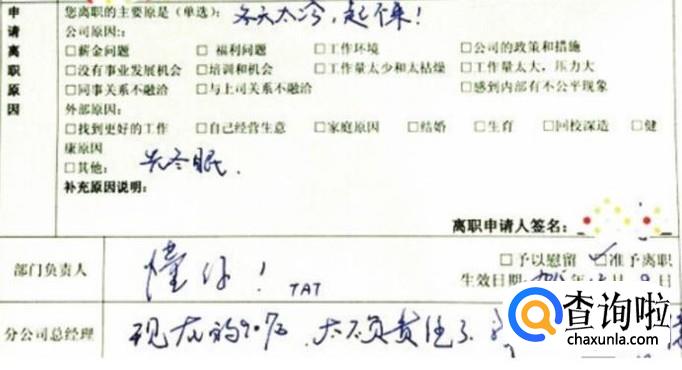 您离职的主要原是(单选): 冬天太冷,起不来!
公司原因:
□薪金问题 □福利问题 □工作环境 □公司的政策和措施
□没有事业发展机会 □培训和机会 □工作量太少和太枯燥 □工作量太大,压力大
□同事关系不融洽 □与上司关系不融洽 □感到内部有不公平现象
外部原因:
□找到更好的工作 □自己经营生意 □家庭原因 □结婚 □生育 □回校深造 □健
康原因
□其他: 先冬眠.
补充原因说明:
申请离职原因
离职申请人签名:
部门负责人 懂你! TAT
□予以慰留 准予离职
生效日期: 年 月 日
分公司总经理 现在的90后,太不负责任了
查询啦
chaxunla.com